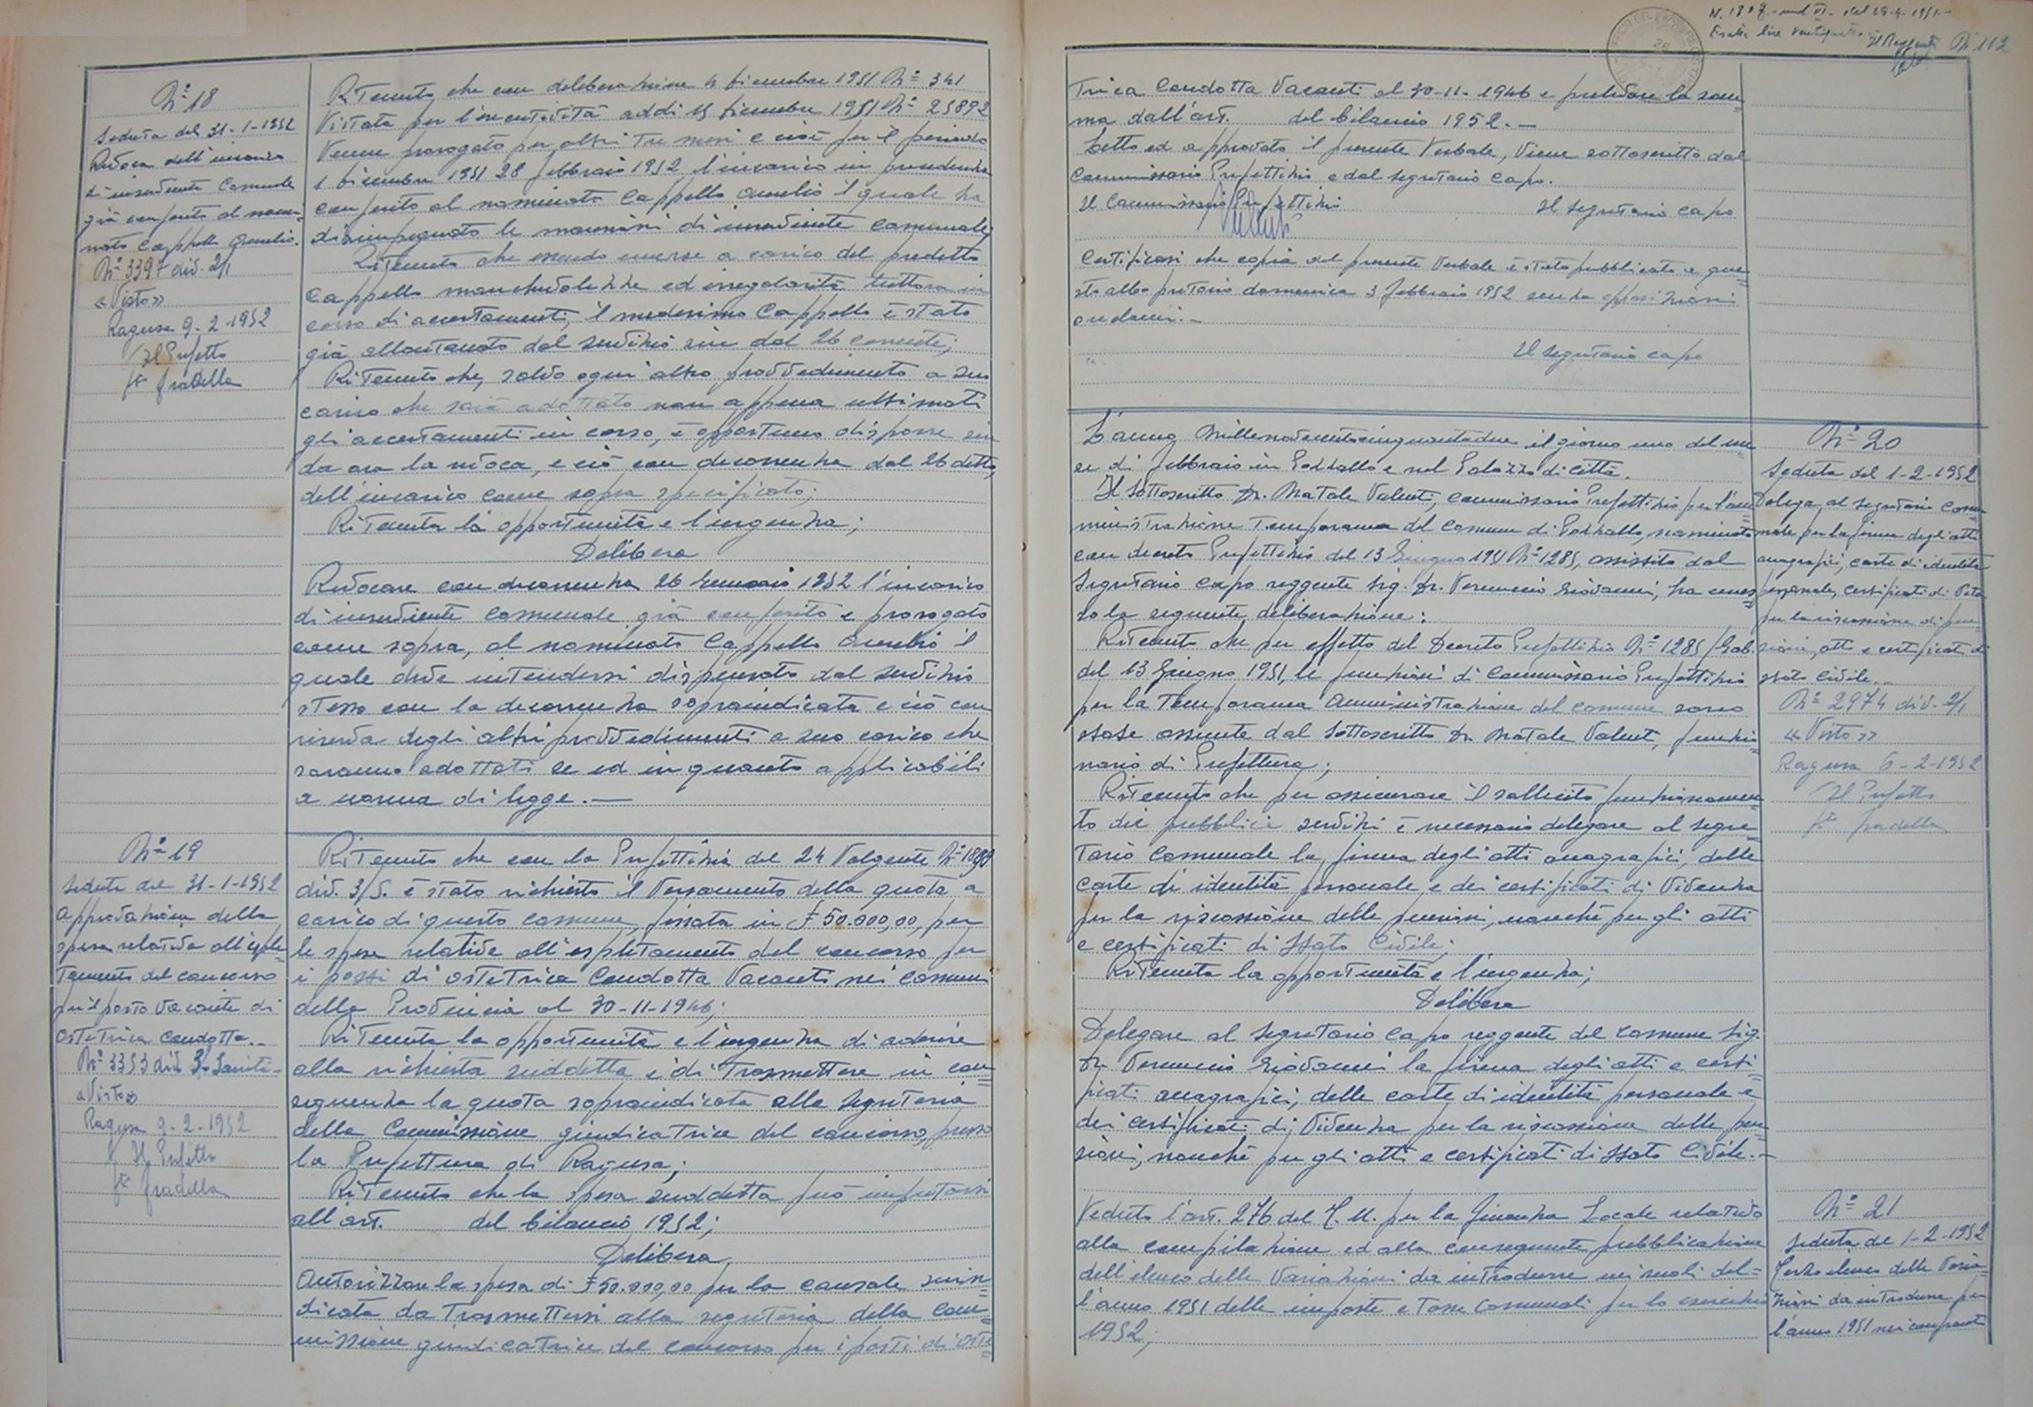 Nº 18
Seduta del 31-1-1952
Revoca dell'incarico
di inserviente Comunale
già conferito al nomi-
nato Cappello Aurelio.
Nº 3397 div. 2/1
«Visto»
Ragusa 9-2-1952
Il Prefetto
fto Gradella
Ritenuto che con deliberazione 4 Dicembre 1951 Nº 341
Vistata per l'esecutività addì 15 Dicembre 1951 Nº 25892
Venne prorogato per altri tre mesi e cioè per il periodo
1 Dicembre 1951 28 febbraio 1952 l'incarico in precedenza
conferito al nominato Cappello Aurelio il quale ha
disimpegnato le mansioni di inserviente comunale;
Ritenuto che essendo emerse a carico del predetto
Cappello manchevolezze ed irregolarità tuttora in
corso di accertamenti, il medesimo Cappello è stato
già allontanato dal servizio sin dal 26 corrente;
Ritenuto che, salvo ogni altro provvedimento a suo
carico che sarà adottato non appena ultimati
gli accertamenti in corso, è opportuno disporre sin
da ora la revoca, e ciò con decorrenza dal 26 detto,
dell'incarico come sopra specificato;
Ritenuta la opportunità e l'urgenza;
Delibera
Revocare con decorrenza 26 Gennaio 1952 l'incarico
di inserviente comunale già conferito e prorogato
come sopra, al nominato Cappello Aurelio il
quale deve intendersi dispensato dal servizio
stesso con la decorrenza sopraindicata e ciò con
riserva degli altri provvedimenti a suo carico che
saranno adottati se ed in quanto applicabili
a norma di legge.—
Nº 19
Seduta del 31-1-1952
Approvazione della
spesa relativa all'esple-
tamento del concorso
per il posto vacante di
Ostetrica Condotta..
Nº 3353 div. 3 Sanità-
«Visto»
Ragusa 9-2-1952
Il Prefetto
fto Gradella
Ritenuto che con la Prefettizia del 24 Volgente Nº
div. 3/S. è stato richiesto il Versamento della quota a
carico di questo comune, fissata in £ 50.000,00, per
le spese relative all'espletamento del concorso per
i posti di Ostetrica Condotta Vacanti nei comuni
della Provincia al 30-11-1946;
Ritenuta la opportunità e l'urgenza di aderire
alla richiesta suddetta e di trasmettere in con-
seguenza la quota sopraindicata alla Segreteria
della Commissione giudicatrice del concorso, presso
la Prefettura di Ragusa;
Ritenuto che la spesa suddetta può imputarsi
all'art. del bilancio 1952;
Delibera
Autorizzare la spesa di £ 50.000,00 per la causale surin-
dicata da trasmettersi alla segreteria della Com-
missione giudicatrice del concorso per i posti di Oste-
N.
Nº 112
trica Condotta Vacanti al 30-11-1946 e prelevare la som-
ma dall'art. del bilancio 1952.—
Letto ed approvato il presente Verbale, viene sottoscritto dal
Commissario Prefettizio e dal segretario capo.
Il Commissario Prefettizio Il Segretario Capo
Certificasi che copia del presente Verbale è stato pubblicato a que-
sto albo pretorio domenica 3 febbraio 1952 senza opposizioni
o reclami.—
Il Segretario Capo
L'anno Millenovecentocinquantadue il giorno uno del me-
se di febbraio in Pozzallo e nel Palazzo di città.
Il sottoscritto Dr. Natale Valenti, Commissario Prefettizio per l'am-
ministrazione temporanea del Comune di Pozzallo, nominato
con decreto Prefettizio del 13 Giugno 1951 Nº 1285, assistito dal
Segretario Capo reggente Sig. Dr. Giovanni, ha emes-
so la seguente deliberazione:
Ritenuto che per effetto del Decreto Prefettizio Nº 1285/Gab.
del 13 Giugno 1951, le funzioni di Commissario Prefettizio
per la temporanea Amministrazione del Comune sono
state assunte dal sottoscritto Dr. Natale Valenti, funzio-
nario di Prefettura;
Ritenuto che per assicurare il sollecito funzionamen-
to dei pubblici servizi è necessario delegare al segre-
tario comunale la firma degli atti anagrafici, delle
carte di identità personale e dei certificati di Videnza
per la riscossione delle pensioni, nonché per gli atti
e certificati di Stato Civile;
Ritenuta la opportunità e l'urgenza;
Delibera
Delegare al Segretario Capo reggente del Comune Sig.
Dr. Giovanni la firma degli atti e certi-
ficati anagrafici, delle carte di identità personale e
dei certificati di Videnza per la riscossione delle pen-
sioni, nonché per gli atti e certificati di Stato Civile.—
Nº 20
Seduta del 1-2-1952
Delega al Segretario Comu-
nale per la firma degli atti
anagrafici, carte di identità
personale, certificati di Vita
per la riscossione di pen-
sioni, atti e certificati di
stato Civile..
Nº 2974 div. 2/1
«Visto»
Ragusa 6-2-1952
Il Prefetto
fto Gradella
Veduto l'art. 276 del T.U. per la Finanza Locale relativo
alla compilazione ed alla conseguente pubblicazione
dell'elenco delle Variazioni da introdurre nei ruoli del-
l'anno 1951 delle imposte e tasse Comunali per lo esercizio
1952;
Nº 21
Seduta del 1-2-1952
Terzo elenco delle Varia-
zioni da introdurre per
l'anno 1951 nei